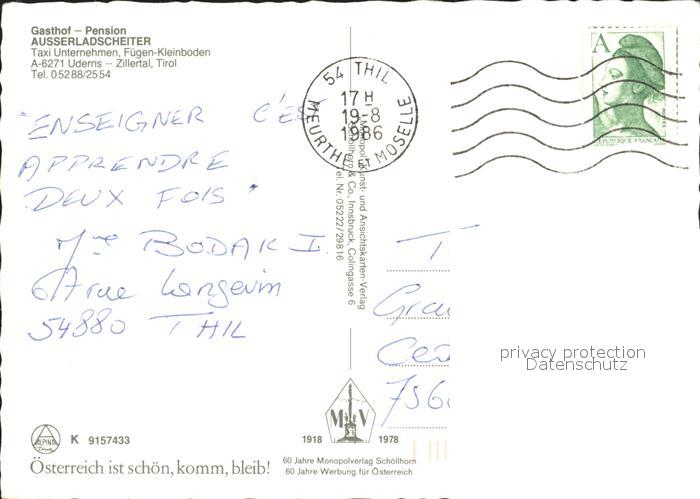 Gasthof – Pension
AUSSERLADSCHEITER
Taxi Unternehmen, Fügen-Kleinboden
A-6271 Uderns – Zillertal, Tirol
Tel. 05288/2554
"ENSEIGNER C'EST
APPRENDRE
DEUX FOIS"
Mme BODAK I.
rue Langevin
54880 THIL
54 THIL
17 H
19-8
1986
MEURTHE ET MOSELLE
A
REPUBLIQUE FRANCAISE
Monopol Kunst- und Ansichtskarten-Verlag
Schöllhorn & Co., Innsbruck, Colingasse 6
Tel. Nr. 05222/29816
T
privacy protection
Datenschutz
MV
1918 1978
60 Jahre Monopolverlag Schöllhorn
60 Jahre Werbung für Österreich
ALPINA
K 9157433
Österreich ist schön, komm, bleib!